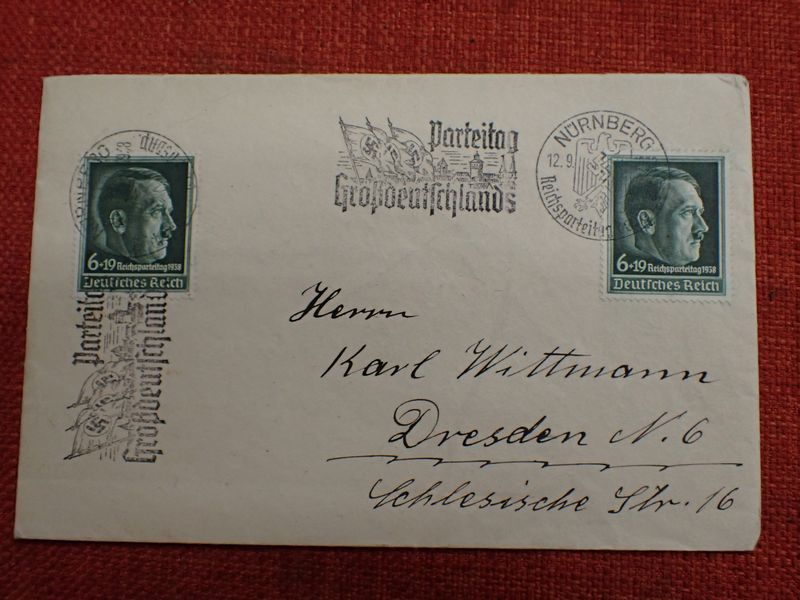 Parteitag
Großdeutschlands
NÜRNBERG
12.9.
Reichsparteitag
6+19 Reichsparteitag 1938
Deutsches Reich
6+19 Reichsparteitag 1938
Deutsches Reich
Parteitag
Großdeutschlands
Herrn
Karl Wittmann
Dresden N. 6
Schlesische Str. 16